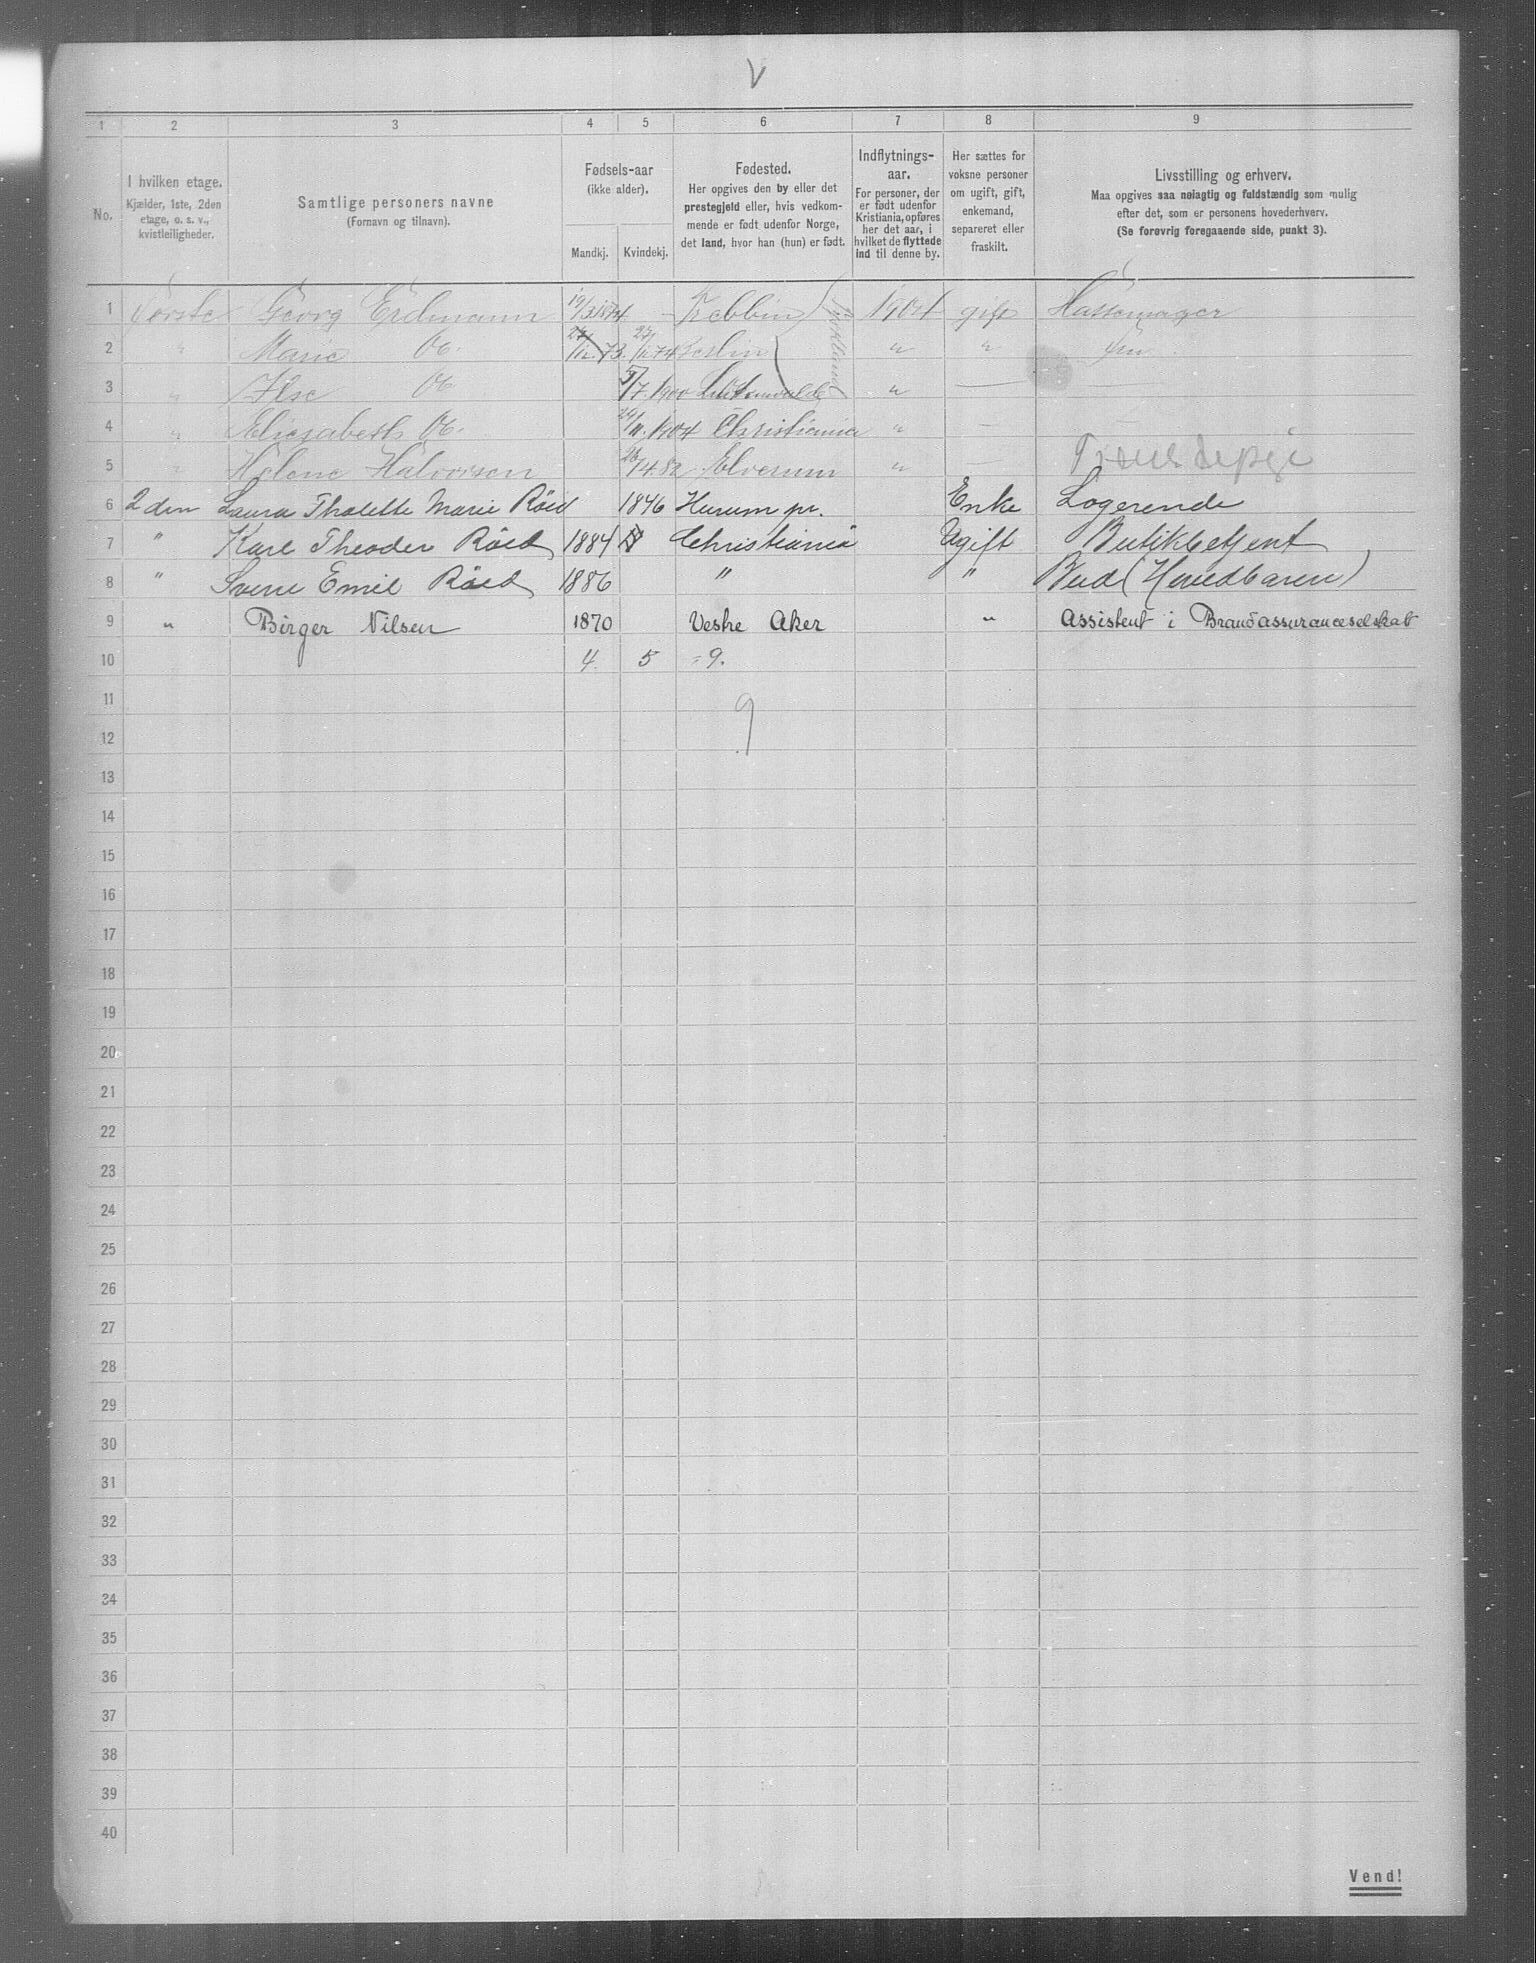 V
1 2 3 4 5 6 7 8 9
No.
I hvilken etage.
Kjælder, 1ste, 2den
etage, o. s. v.,
kvistleiligheder.
Samtlige personers navne
(Fornavn og tilnavn).
Fødsels-aar
(ikke alder).
Mandkj. Kvindekj.
Fødested.
Her opgives den by eller det
prestegjeld eller, hvis vedkom-
mende er født udenfor Norge,
det land, hvor han (hun) er født.
Indflytnings-
aar.
For personer, der
er født udenfor
Kristiania, opføres
her det aar, i
hvilket de flyttede
ind til denne by.
Her sættes for
voksne personer
om ugift, gift,
enkemand,
separeret eller
fraskilt.
Livsstilling og erhverv.
Maa opgives saa nøiagtig og fuldstændig som mulig
efter det, som er personens hovederhverv.
(Se forøvrig foregaaende side, punkt 3).
1 Første Georg Erdmann 19/3 1874 - Trebbin 1904 gift
2 " Marie Do. 27/12.73. 27/12 74 Berlin " "
3 " Ilse Do 5/7.1900 Luckenwalde " —
4 " Elisabeth Do. 24/11.1904 Christiania " —
5 " Helene Halvorsen 26/4.82 Elverum " — Tjenestepige
6 2den Laura Thalette Marie Röed 1846 Hurum pr. Enke Logerende
7 " Karl Theodor Röed 1884 Christiania Ugift Butikbetjent
8 " Sverre Emil Röed 1886 " " Bud (Hovedbanen)
9 " Birger Nilsen 1870 Vestre Aker " Assistent i Brandassuranceselskab
10 4. 5 = 9.
11 9
12
13
14
15
16
17
18
19
20
21
22
23
24
25
26
27
28
29
30
31
32
33
34
35
36
37
38
39
40
Vend!